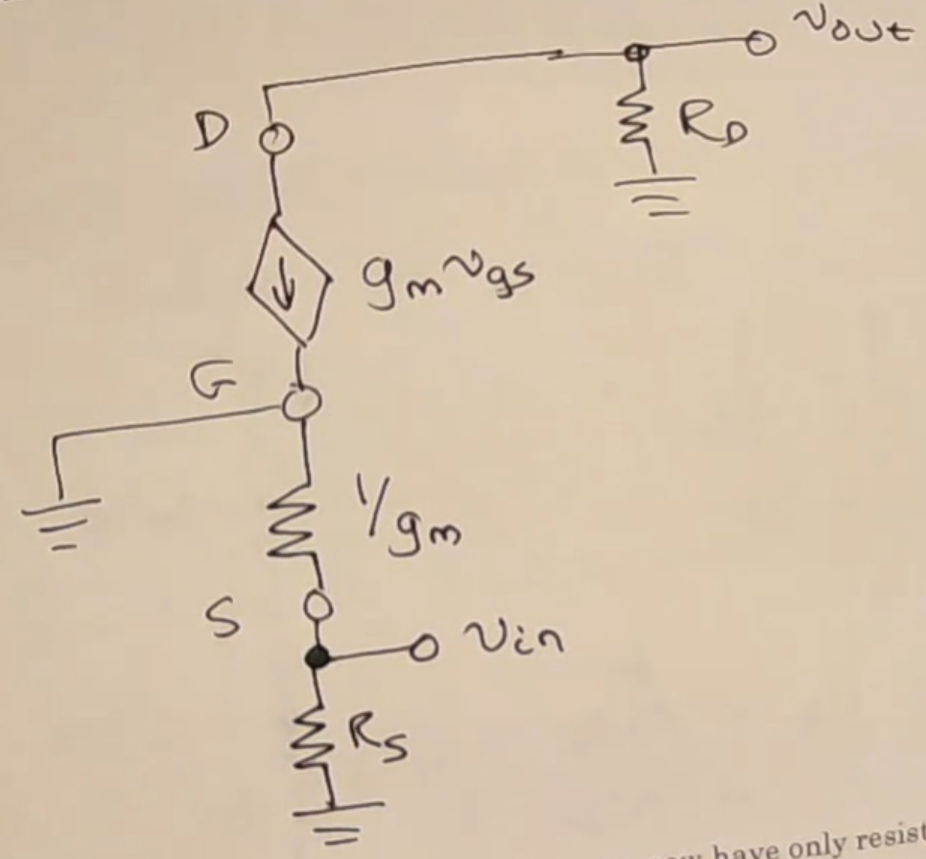 vout
D
RD
gmvgs
G
1/gm
S
vin
RS
have only resist